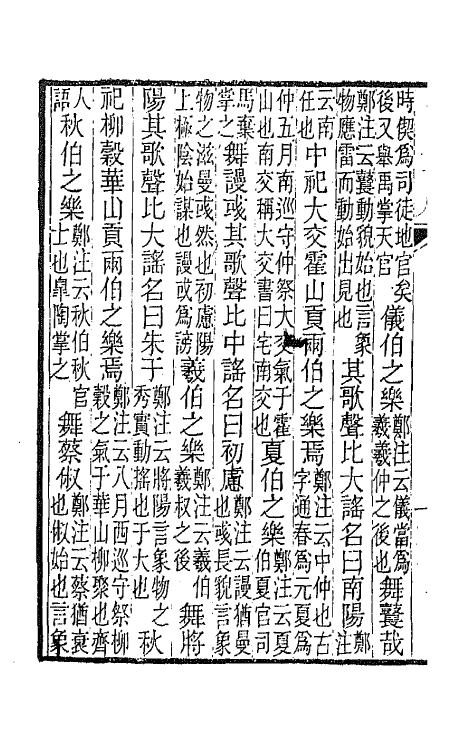 時偰爲司徒地官矣後又舉禹掌天官儀伯之樂鄭注云儀當爲羲羲仲之後也舞鼚哉
鄭注云鼚動貌始也言象物應雷而動始出見也其歌聲比大謠名曰南陽鄭注
云南任也中祀大交霍山貢兩伯之樂焉鄭注云中仲也古字通春爲元夏爲
仲五月南巡守仲祭大交氣于霍山也南交稱大交書曰宅南交也夏伯之樂鄭注云夏伯夏官司
馬棄掌之舞謾彧其歌聲比中謠名曰初慮鄭注云謾猶曼也彧長貌言象
物之滋曼彧然也初慮陽上極陰始謀也謾或爲謗羲伯之樂鄭注云羲伯羲叔之後舞將
陽其歌聲比大謠名曰朱于鄭注云將陽言象物之秀實動搖也于大也秋
祀柳榖華山貢兩伯之樂焉鄭注云八月西巡守祭柳榖之氣于華山柳聚也齊
人語秋伯之樂鄭注云秋伯秋官士也皐陶掌之舞蔡俶鄭注云蔡猶衰也俶始也言象